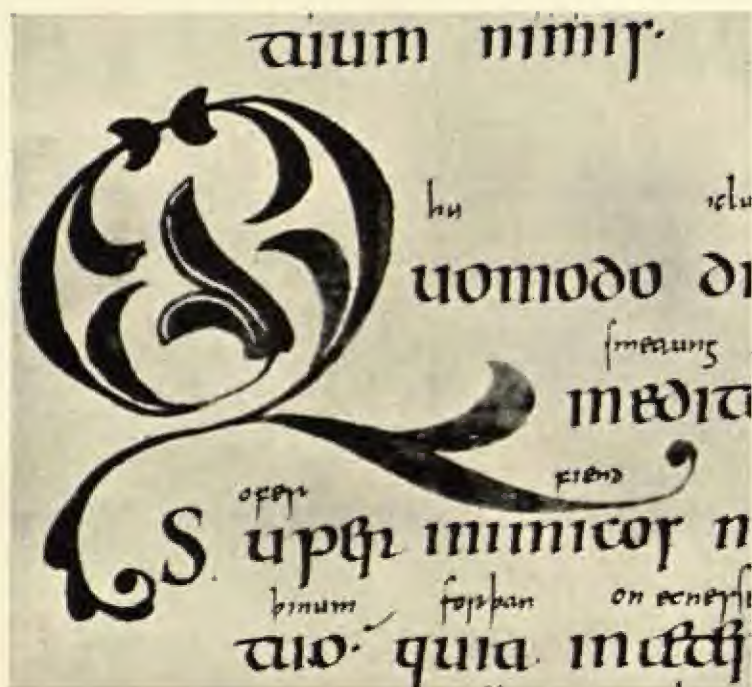 tuum nimis·
hu ic lu
Quomodo di
smeaung
medit
ofer fiend
Super inimicos
þinum forþan on ecness
tuo· quia in